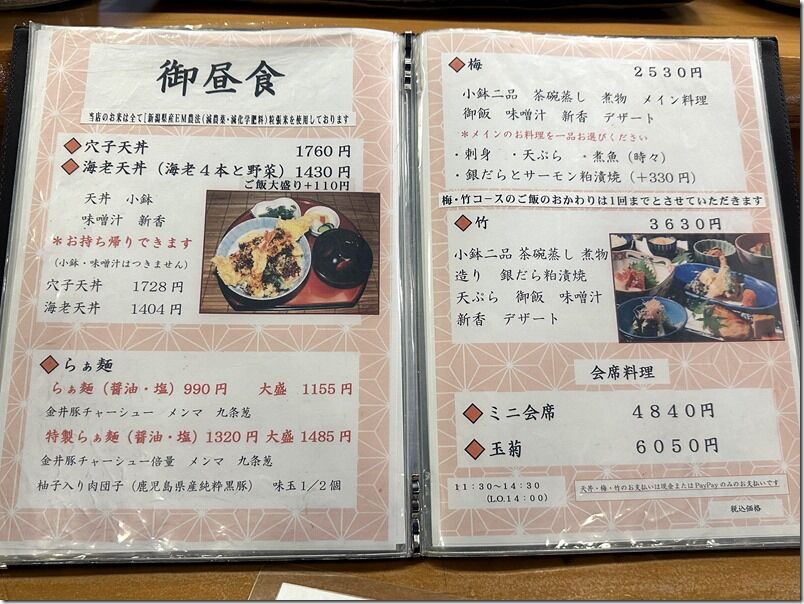 御昼食
当店のお米は全て「新潟県産EM農法(減農薬・減化学肥料)松張米を使用しております
◆穴子天丼 1760円
◆海老天丼(海老4本と野菜) 1430円
ご飯大盛り+110円
天丼 小鉢
味噌汁 新香
*お持ち帰りできます
(小鉢・味噌汁はつきません)
穴子天丼 1728円
海老天丼 1404円
◆らぁ麺
らぁ麺(醤油・塩)990円 大盛 1155円
金井豚チャーシュー メンマ 九条葱
特製らぁ麺(醤油・塩)1320円 大盛 1485円
金井豚チャーシュー倍量 メンマ 九条葱
柚子入り肉団子(鹿児島県産純粋黒豚) 味玉1/2個
◆梅 2530円
小鉢二品 茶碗蒸し 煮物 メイン料理
御飯 味噌汁 新香 デザート
*メインのお料理を一品お選びください
・刺身 ・天ぷら ・煮魚(時々)
・銀だらとサーモン粕漬焼(+330円)
梅・竹コースのご飯のおかわりは1回までとさせていただきます
◆竹 3630円
小鉢二品 茶碗蒸し 煮物
造り 銀だら粕漬焼
天ぷら 御飯 味噌汁
新香 デザート
会席料理
◆ミニ会席 4840円
◆玉菊 6050円
11:30~14:30
(LO.14:00)
天丼・梅・竹のお支払いは現金またはPayPayのみのお支払いです
税込価格